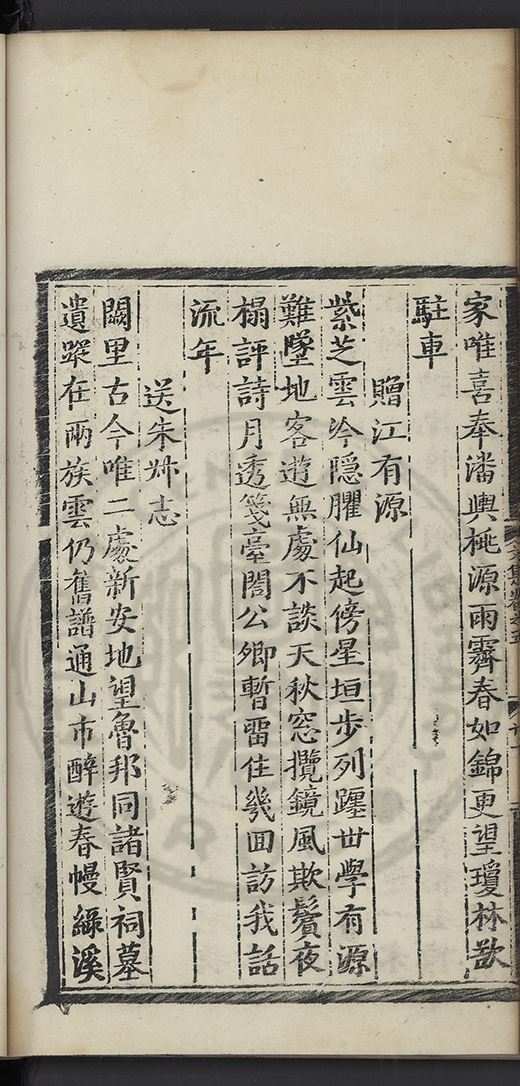 家唯喜奉潘輿桃源雨霽春如錦更望瓊林敬
駐車
贈江有源
紫芝雲冷隱臞仙起傍星垣步列躔丗學有源
難墜地客遊無處不談天秋窓攬鏡風欺鬢夜
榻評詩月透箋臺閣公卿暫畱住幾回訪我話
流年
送朱叔志
闕里古今唯二處新安地望魯邦同諸賢祠墓
遺蹤在兩族雲仍舊譜通山市醉遊春幔綠溪